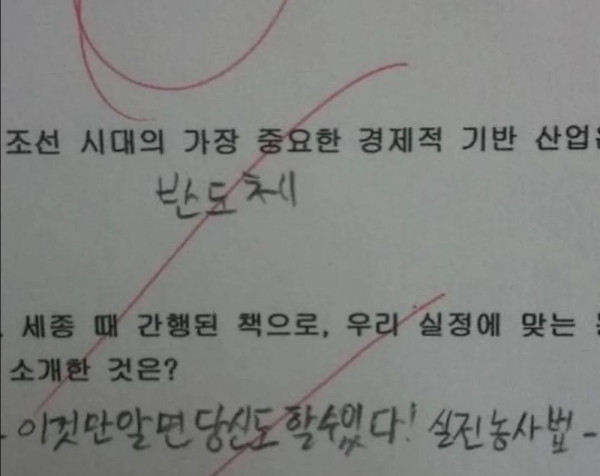 조선 시대의 가장 중요한 경제적 기반 산업은
반도체
세종 때 간행된 책으로, 우리 실정에 맞는
소개한 것은?
- 이것만 알면 당신도 할수있다! 실진농사법 -